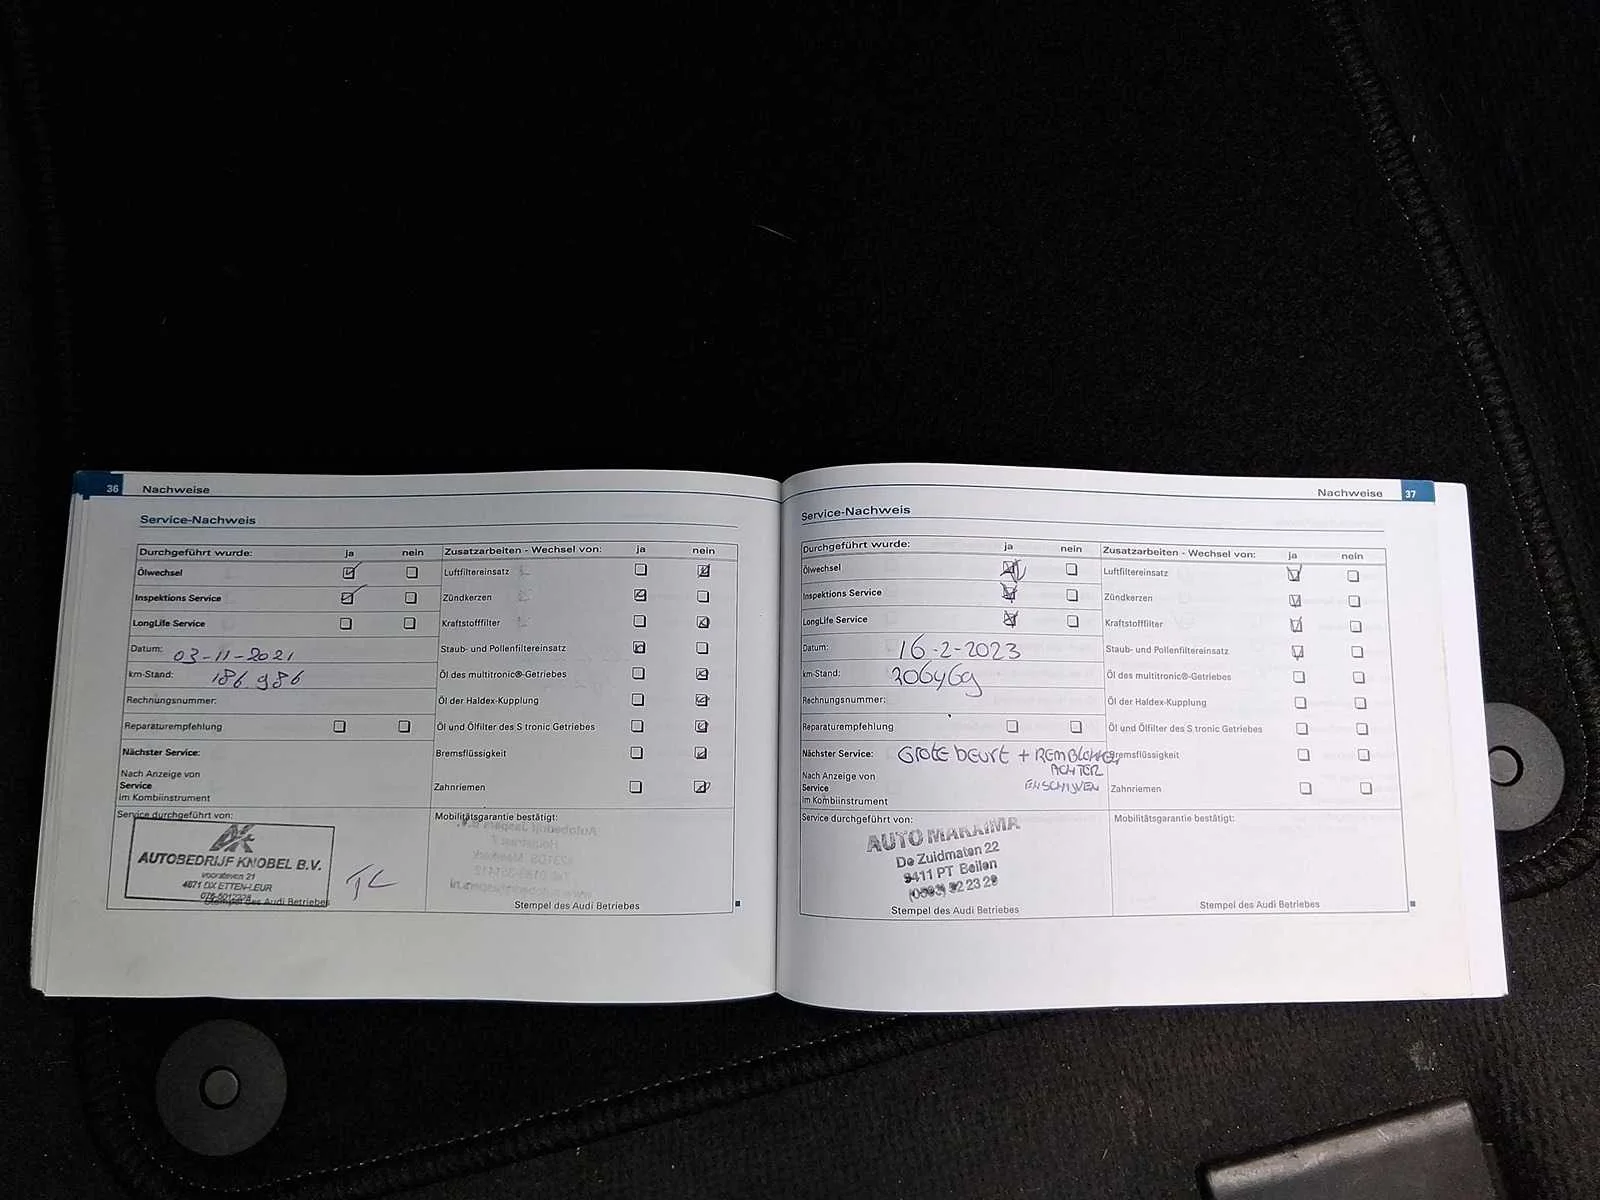 36 Nachweise
Service-Nachweis
Durchgeführt wurde: ja nein Zusatzarbeiten - Wechsel von: ja nein
Ölwechsel Luftfiltereinsatz
Inspektions Service Zündkerzen
LongLife Service Kraftstofffilter
Datum: 03-11-2021 Staub- und Pollenfiltereinsatz
km-Stand: 186.986 Öl des multitronic®-Getriebes
Rechnungsnummer: Öl der Haldex-Kupplung
Reparaturempfehlung Öl und Ölfilter des S tronic Getriebes
Nächster Service: Bremsflüssigkeit
Nach Anzeige von
Service Zahnriemen
im Kombiinstrument
Service durchgeführt von: Mobilitätsgarantie bestätigt:
AUTOBEDRIJF KNOBEL B.V.
4871 DX ETTEN-LEUR
Stempel des Audi Betriebes Stempel des Audi Betriebes
Nachweise 37
Service-Nachweis
Durchgeführt wurde: ja nein Zusatzarbeiten - Wechsel von: ja nein
Ölwechsel Luftfiltereinsatz
Inspektions Service Zündkerzen
LongLife Service Kraftstofffilter
Datum: 16-2-2023 Staub- und Pollenfiltereinsatz
km-Stand: Öl des multitronic®-Getriebes
Rechnungsnummer: Öl der Haldex-Kupplung
Reparaturempfehlung Öl und Ölfilter des S tronic Getriebes
Nächster Service: Grote beurt + Bremsflüssigkeit
ACHTER
Nach Anzeige von
Service EN SCHIJVEN Zahnriemen
im Kombiinstrument
Service durchgeführt von: Mobilitätsgarantie bestätigt:
AUTO MAKKIMA
De Zuidmaten 22
9411 PT Beilen
(0593) 52 23 29
Stempel des Audi Betriebes Stempel des Audi Betriebes